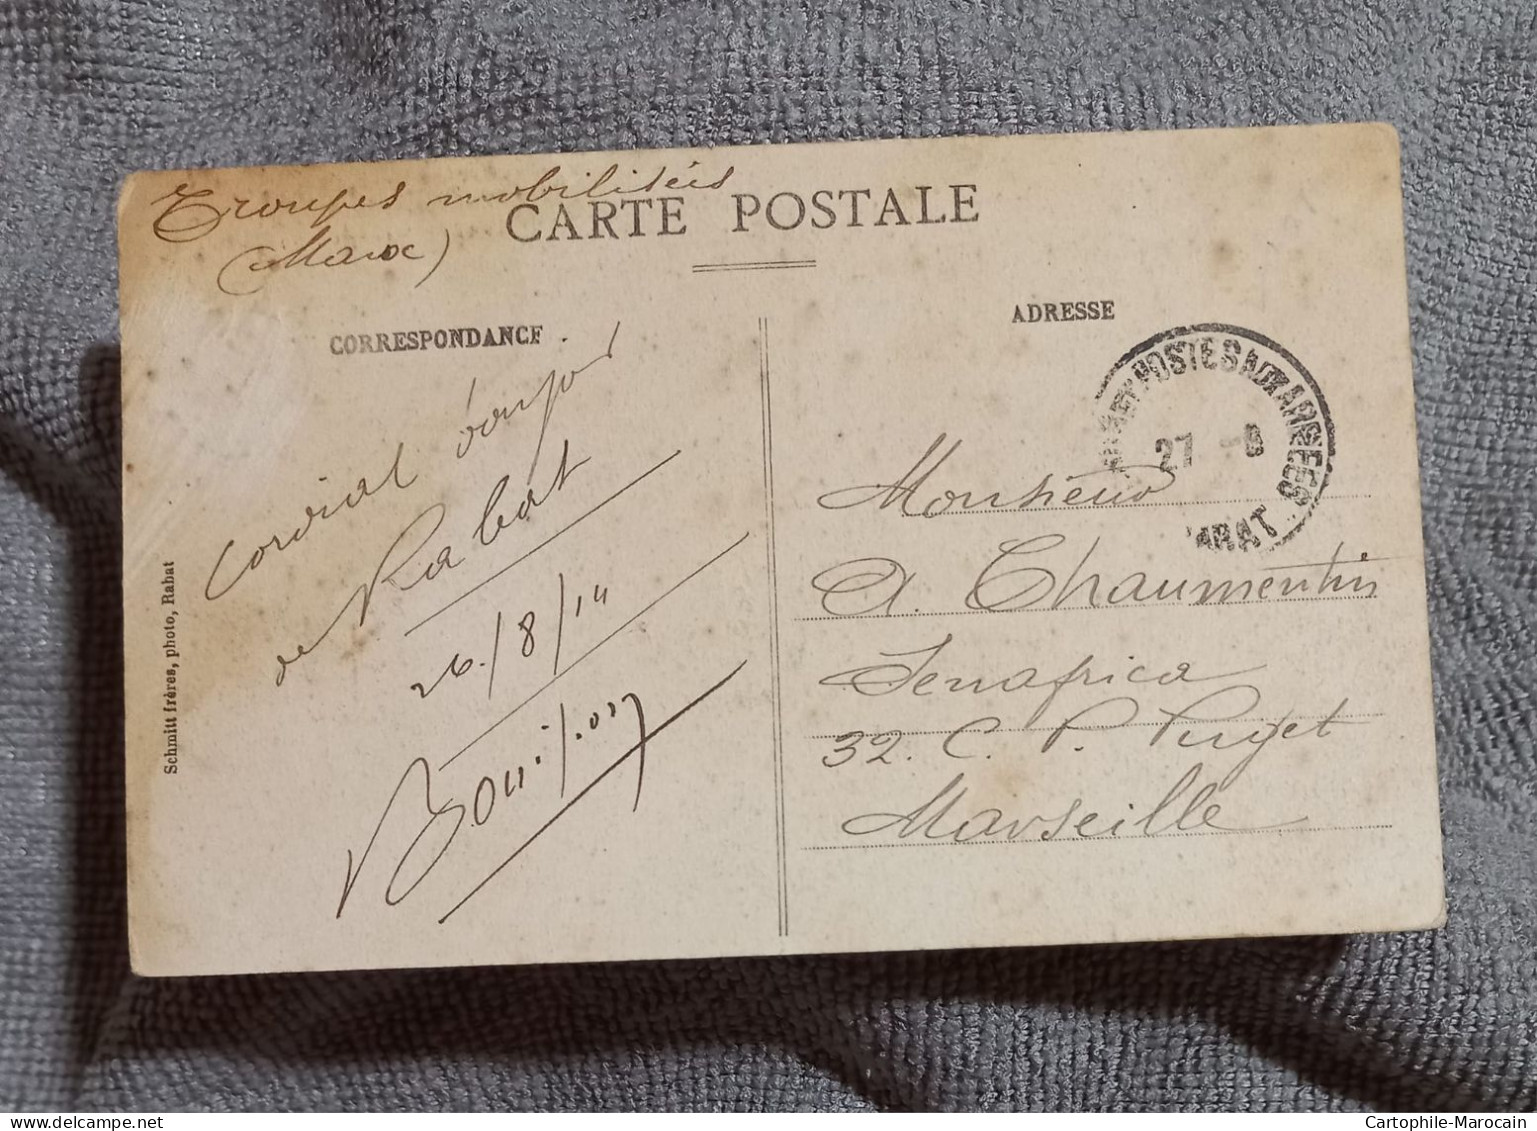 Troupes mobilisées
(Maroc)
CARTE POSTALE
CORRESPONDANCE
ADRESSE
Cordial bonjour
de Rabat
26/8/14
Schmitt frères, photo, Rabat
POSTES AUX ARMEES
27 -8
RABAT
Monsieur
A. Chaumentin
Senafrica
32. C. P. Puget
Marseille
Cartophile-Marocain